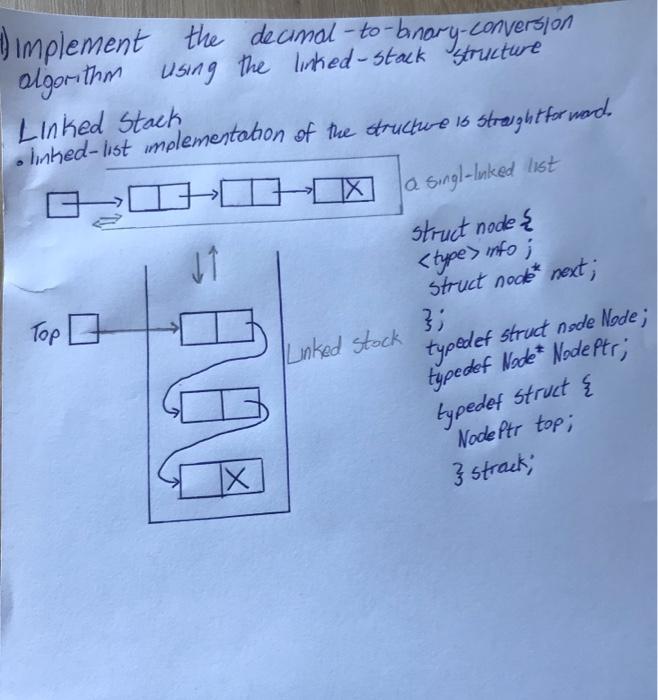 1) Implement the decimal-to-binary-conversion
algorithm using the linked-stack structure
Linked Stack
• linked-list implementation of the structure is straightforward.
a singl-linked list
struct node {
<type> info;
struct node* next;
};
typedef struct node Node;
typedef Node* NodePtr;
typedef struct {
NodePtr top;
} strack;
Top
Linked stack
X
X